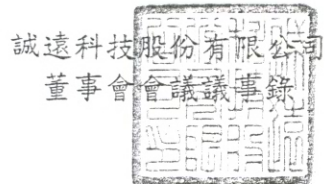 誠遠科技股份有限公司
董事會會議議事錄